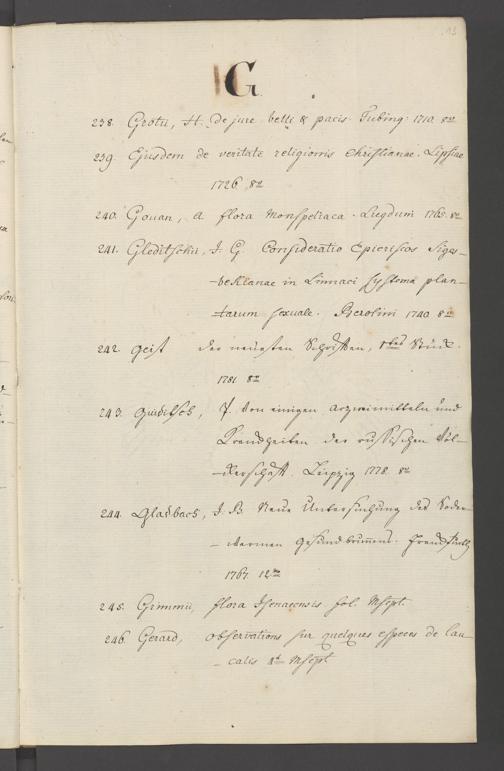 G
238. Grotii, H. de jure belli & pacis. Tubing: 1710. 8vo
239. Ejusdem de veritate religionis christianae. Lipsiae
1726. 8vo
240. Gouan, A flora Monspeliaca. Lugdum 1765. 8vo
241. Gleditschii, J. G. Consideratio Epicriseos Siges-
-beckianae in Linnaei Systema plan-
-tarum sexuale. Berolini 1740 8vo
242. Geist der neuesten Schriften, 1tes Stück.
1781. 8vo
243. J. Von einigen Arzneimitteln und
Krankheiten der russischen Völ-
-kerschaft. Leipzig 1778. 8vo
244. Gladbachs, J. B. Neue Untersuchung des Soder-
Gesundbrunnens. Frankfurth
1767. 12mo
245. Grimmii, flora Isenacensis fol. Mscpt.
246. Gerard, observations sur quelques especes de Cau-
-calis 4t Mscpt